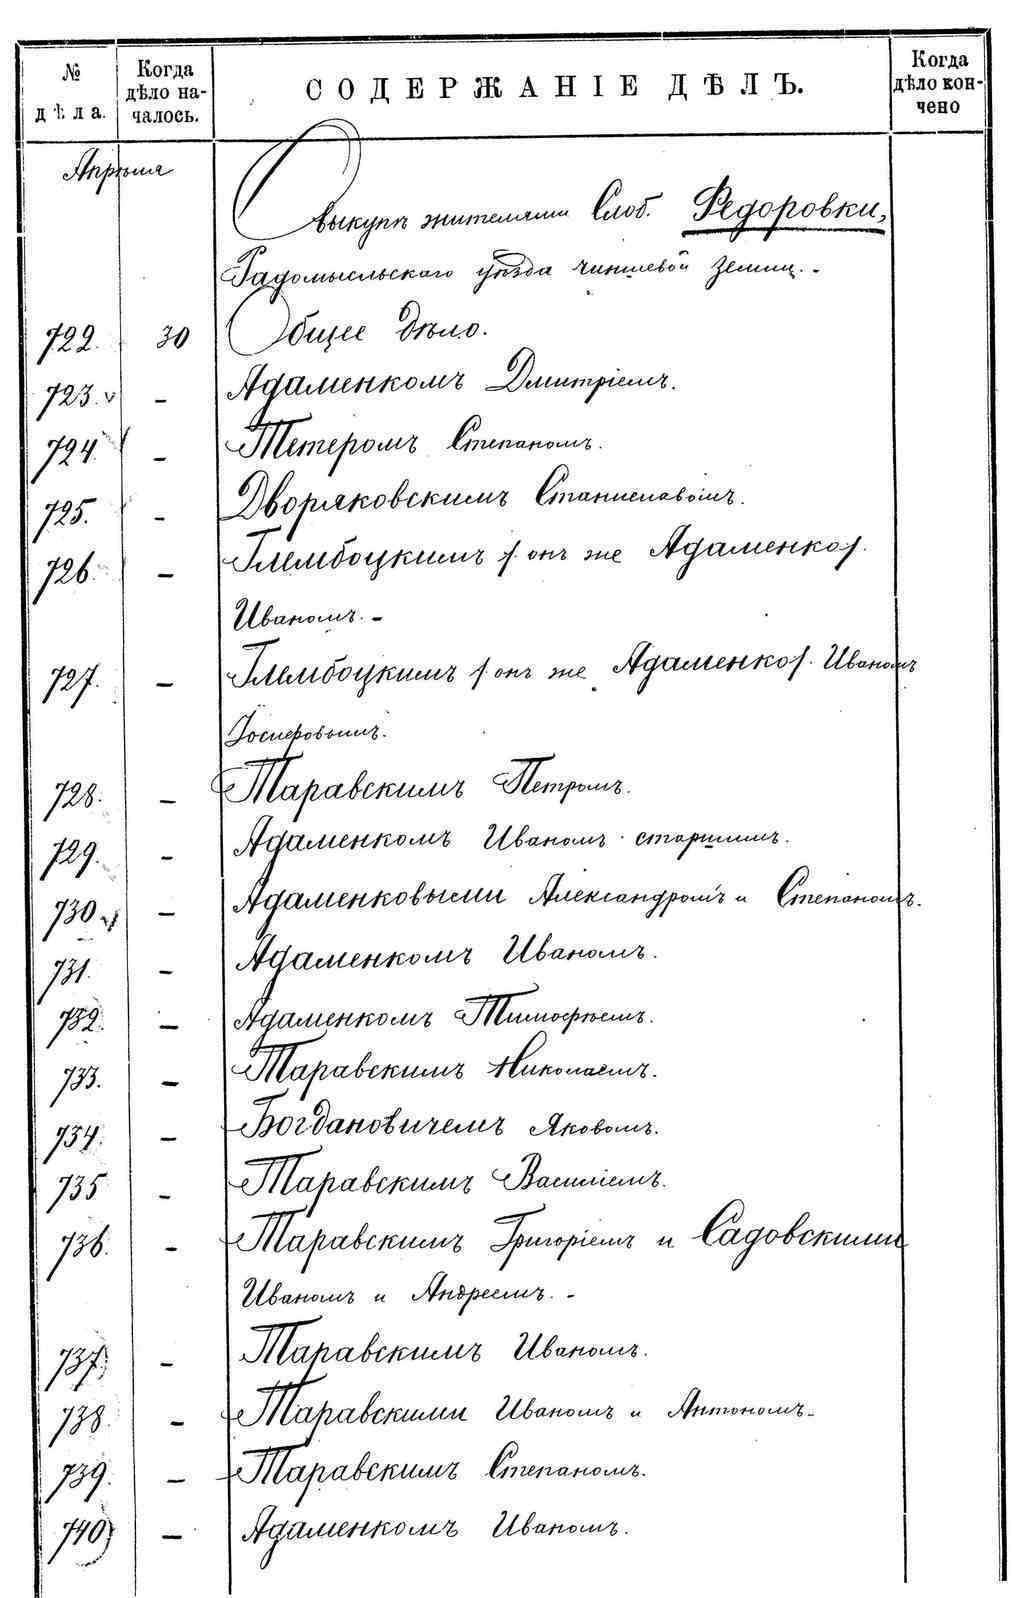 № дѣла. Когда дѣло началось. СОДЕРЖАНІЕ ДѢЛЪ. Когда дѣло кончено
Апрѣля
О выкупѣ жителями Слоб. Федоровки,
Радомысльскаго уѣзда чиншевой земли.-
722. 30 Общее дѣло.
723. - Адаменкомъ Дмитріемъ.
724. - Тетеромъ Степаномъ.
725. - Дворяковскимъ Станиславомъ.
726. - Глембоцкимъ /онъ же Адаменко/.
Иваномъ.-
727. - Глембоцкимъ /онъ же Адаменко/. Иваномъ
Іосифовымъ.
728. - Таравскимъ Петромъ.
729. - Адаменкомъ Иваномъ старшимъ.
730 - Адаменковыми Александромъ и Степаномъ.
731. - Адаменкомъ Иваномъ.
732. - Адаменкомъ Тимофѣемъ.
733. - Таравскимъ Николаемъ.
734. - Богдановичемъ Яковомъ.
735 - Таравскимъ Василіемъ.
736. - Таравскимъ Григоріемъ и Садовскими
Иваномъ и Андреемъ.-
737. - Таравскимъ Иваномъ.
738. - Таравскими Иваномъ и Антономъ.
739. - Таравскимъ Степаномъ.
740 - Адаменкомъ Иваномъ.